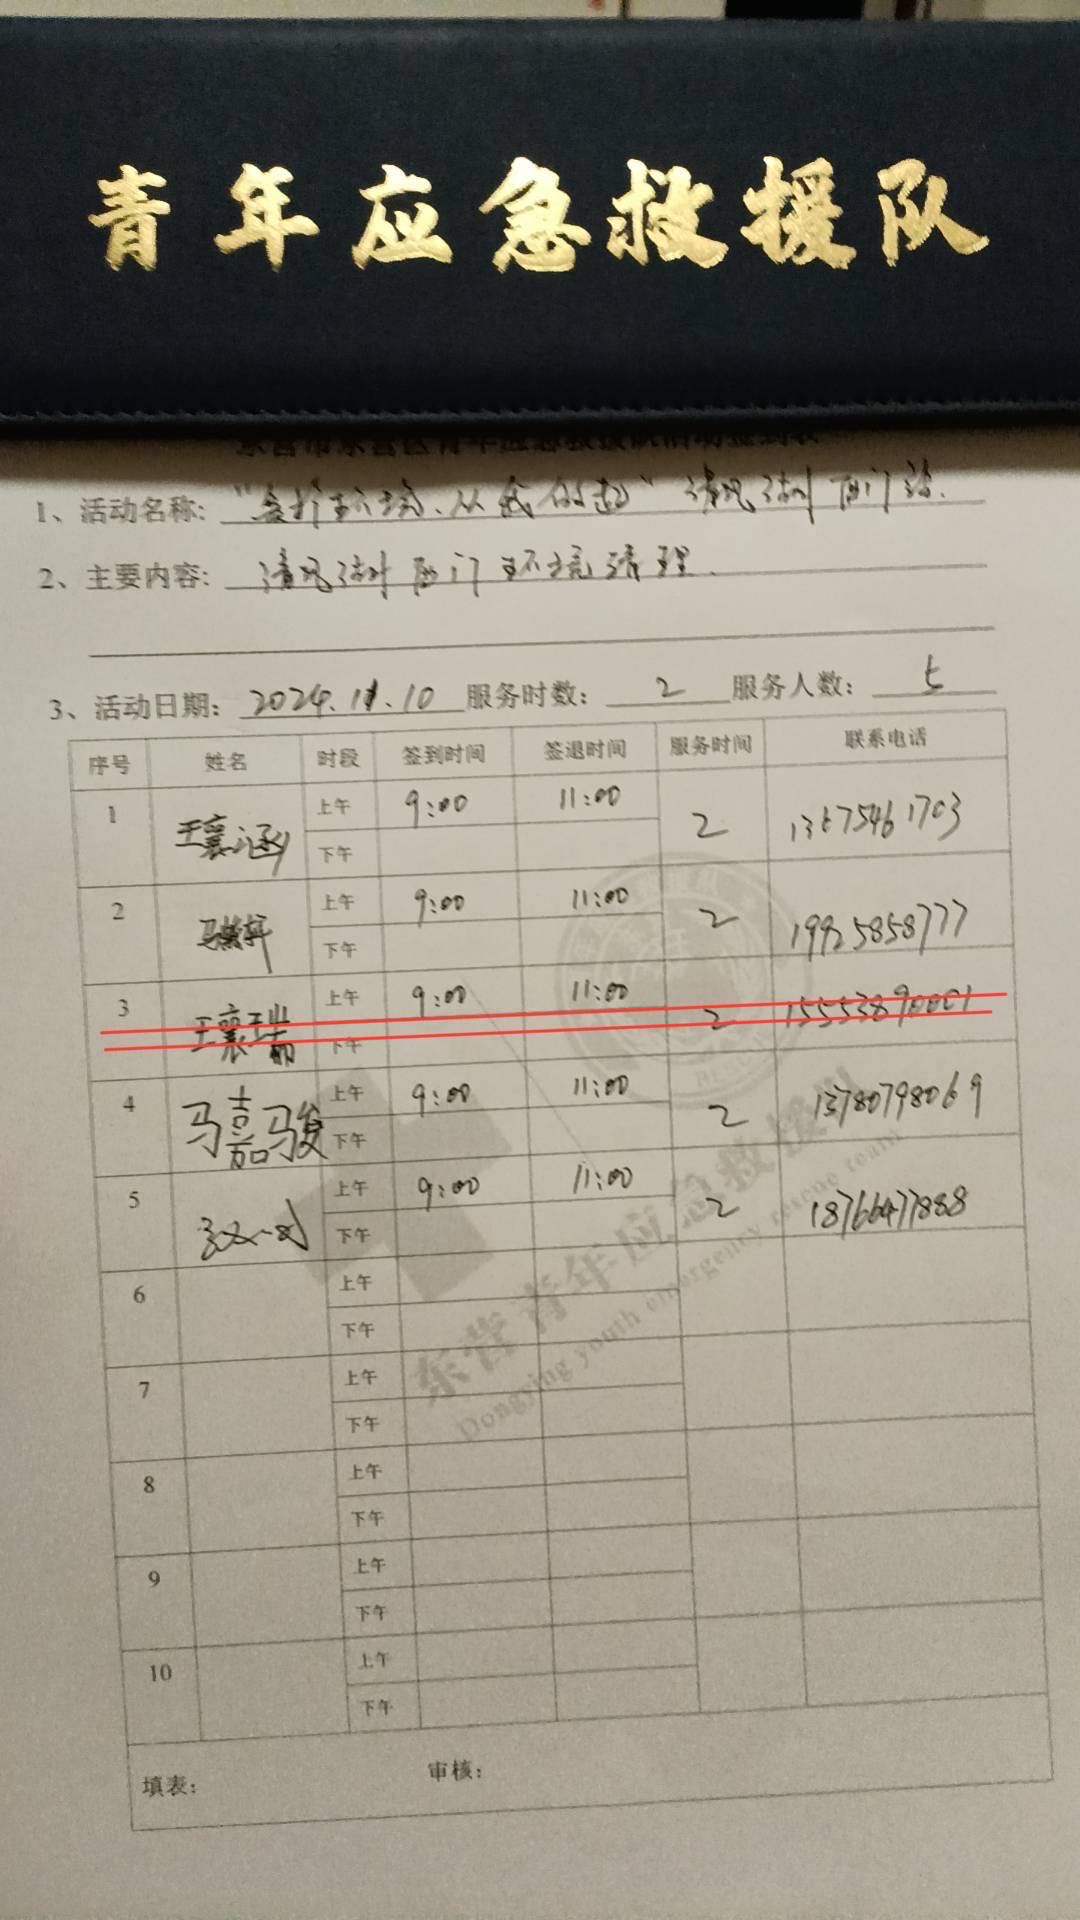 青年应急救援队
东营市东营区青年应急救援队活动签到表
1、活动名称: 从我 起" 清风湖西门站.
2、主要内容: 清风湖西门环境清理.
3、活动日期: 2024.11.10 服务时数: 2 服务人数: 5
序号 姓名 时段 签到时间 签退时间 服务时间 联系电话
1 王襄涵 上午 9:00 11:00 2 13675461703
下午
2 上午 9:00 11:00 2 19925858777
下午
3 王襄瑞 上午 9:00 11:00 2 15553890001
下午
4 马嘉骏 上午 9:00 11:00 2 13780798069
下午
5 上午 9:00 11:00 2 18766477888
下午
6 上午
下午
7 上午
下午
8 上午
下午
9 上午
下午
10 上午
下午
填表: 审核:
东营青年应急救援
Dongying youth emergency rescue team